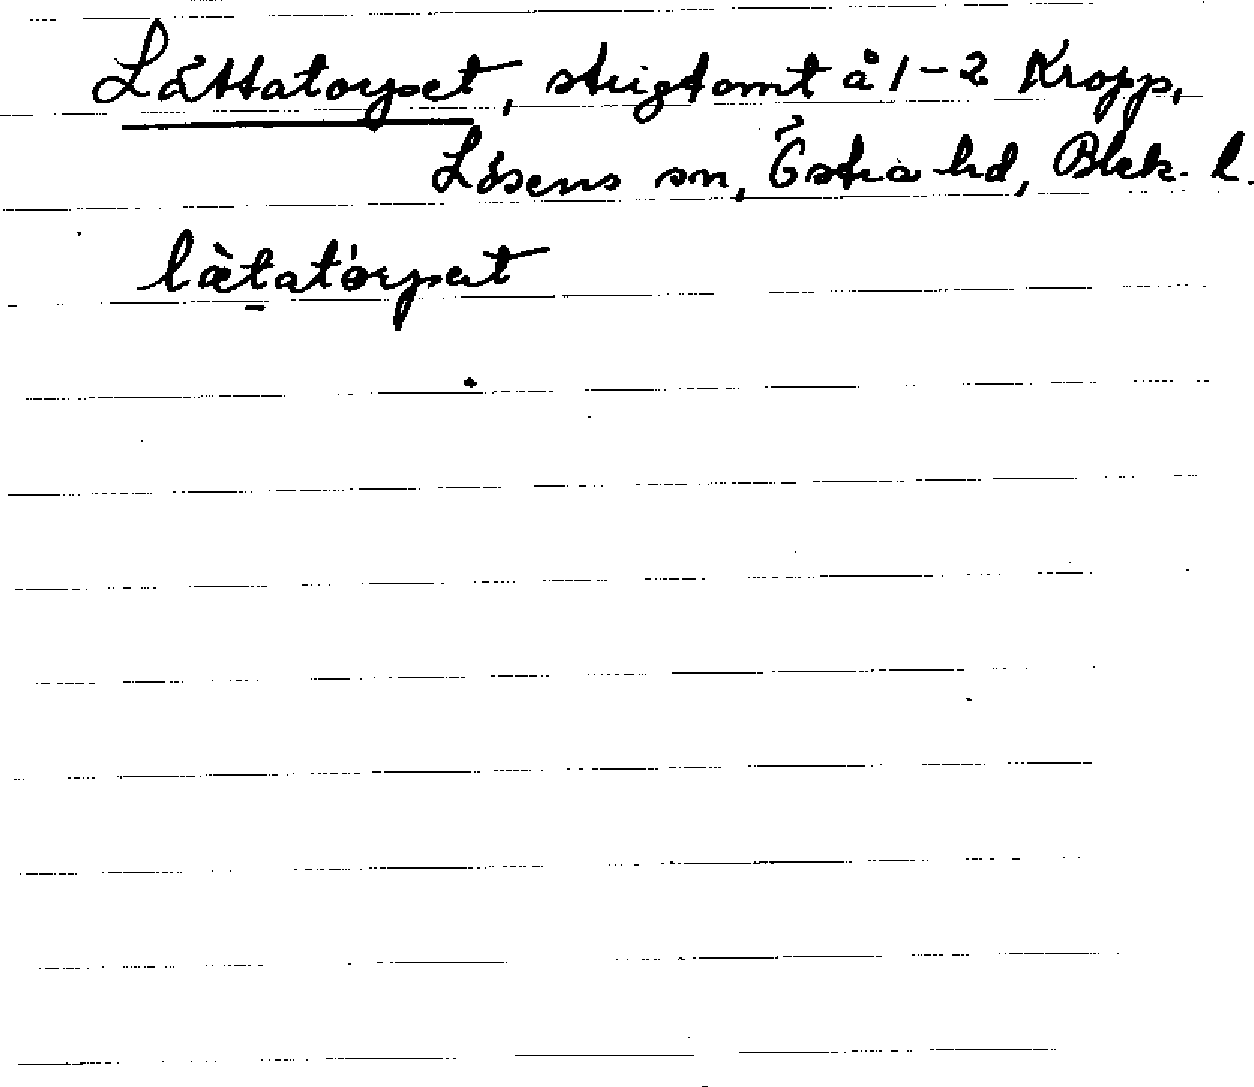 Lättatorpet, strigtomt å 1-2 Kropp,
Lösens sn, Östra hd, Blek. l.
lætatorpet